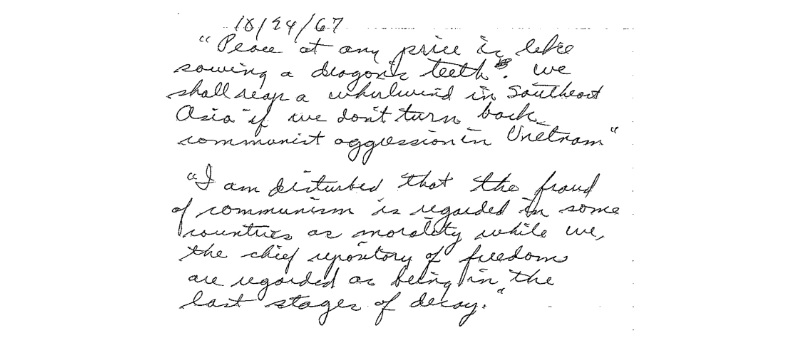 10/24/67
"Peace at any price is like
sowing a dragon's teeth". We
shall reap a whirlwind in Southeast
Asia if we don't turn back
communist aggression in Vietnam"
"I am disturbed that the fraud
of communism is regarded in some
countries as morality while we,
the chief repository of freedom
are regarded as being in the
last stages of decay."